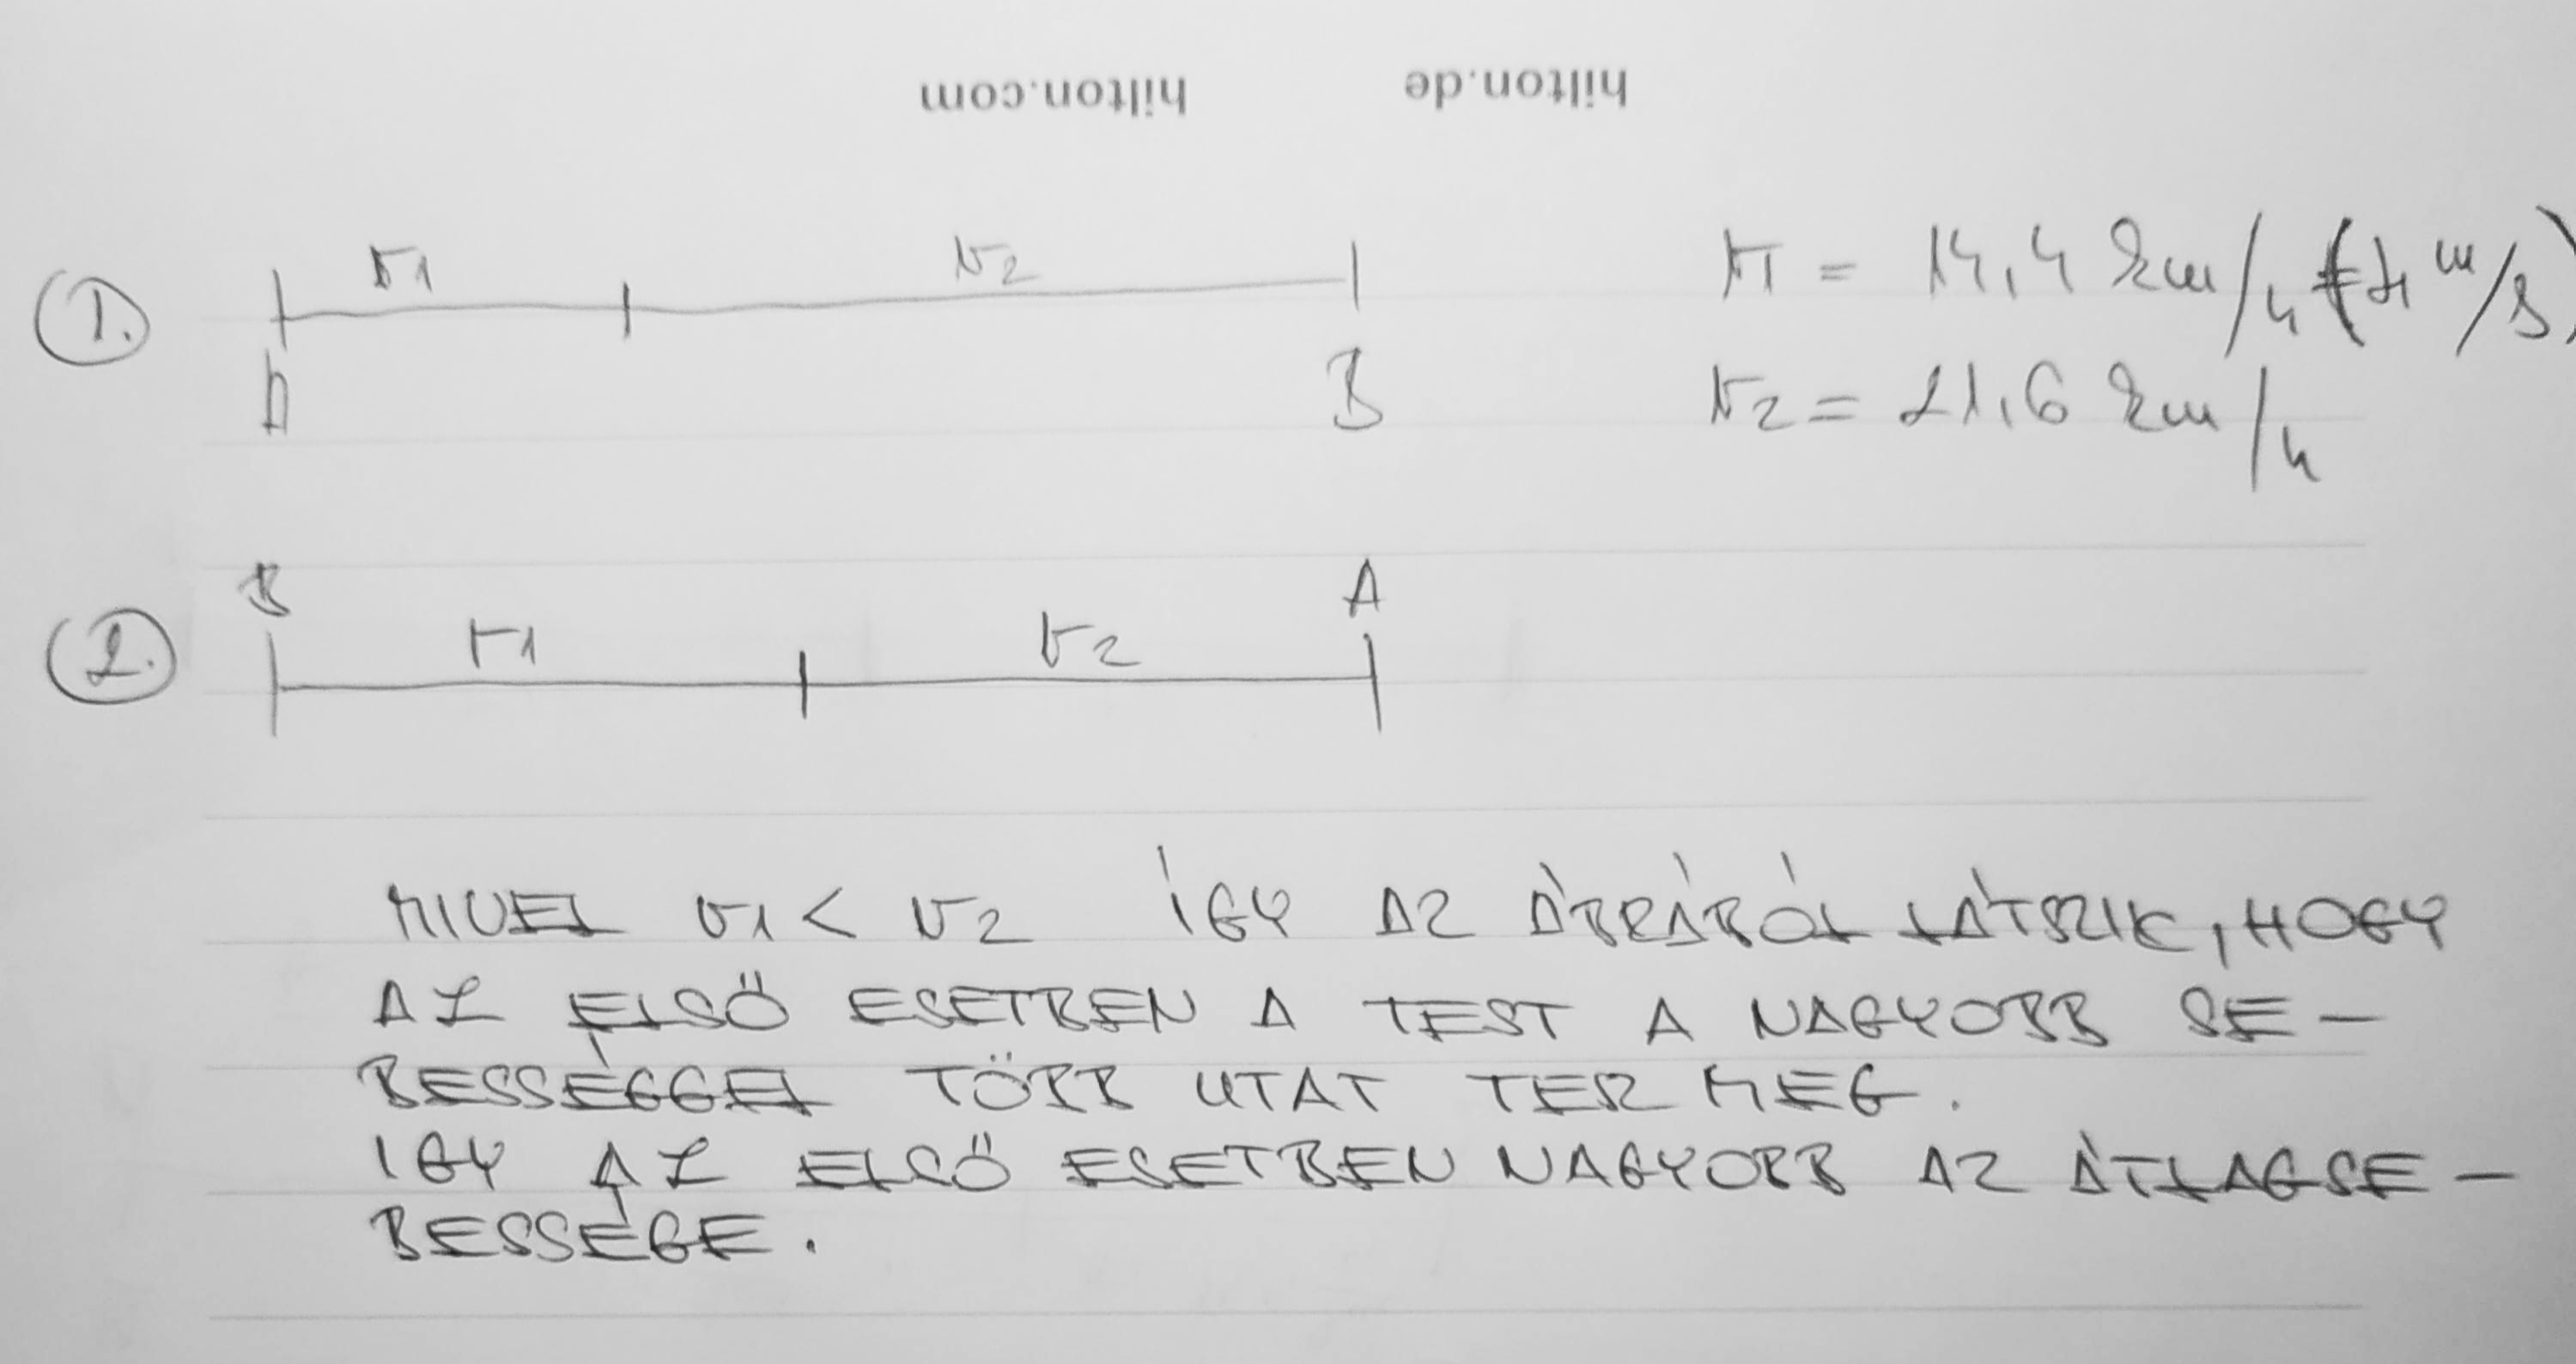 hilton.com hilton.de
1. v1 v2 v1 = 14,4 km/h (4 m/s)
A B v2 = 21,6 km/h
B A
2. v1 v2
MIVEL v1 < v2 ÍGY AZ ÁBRÁRÓL LÁTSZIK, HOGY
AZ ELSŐ ESETBEN A TEST A NAGYOBB SE-
BESSÉGGEL TÖBB UTAT TESZ MEG.
IGY AZ ELSŐ ESETBEN NAGYOBB AZ ÁTLAGSE-
BESSÉGE.